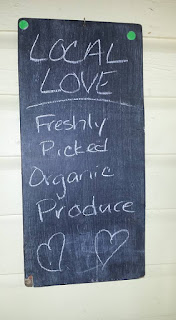 LOCAL
LOVE
Freshly
Picked
Organic
Produce